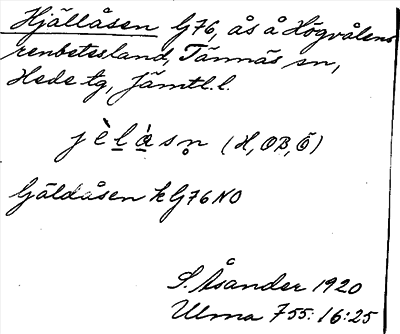 Hjällåsen G76, ås å Högvålens
renbetesland, Tännäs sn,
Hede tg, Jämtl. l.
jèl̲à̲sn̥ (H, OB, Ö)
Gäldåsen k G76 NO
S. Åsander 1920
Ulma 755:16:25